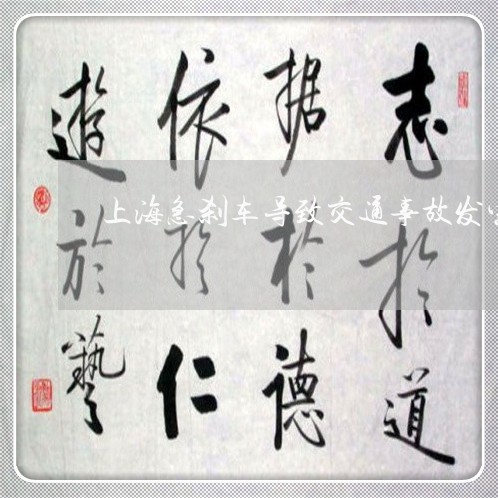 志於道
据於德
依於仁
遊於藝
上海急刹车导致交通事故发